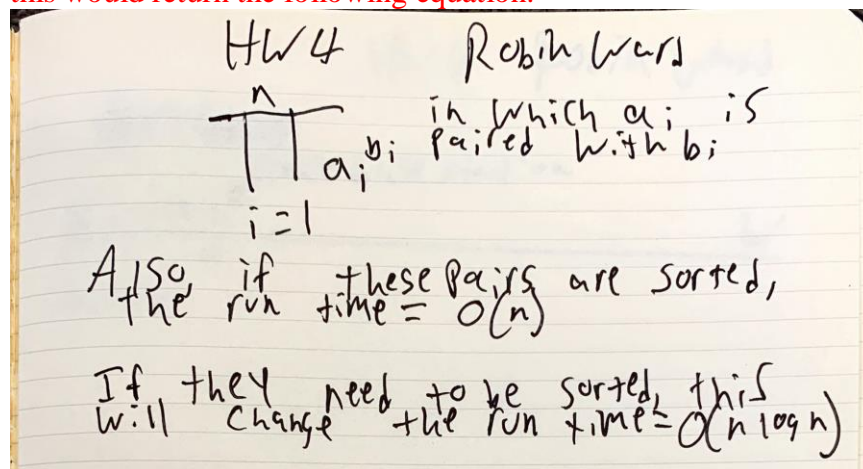 this would return the following equation.
HW4 Robin Ward
n
∏ a_i^{b_i} in which a_i is
paired with b_i
i=1
Also, if these pairs are sorted,
the run time = O(n)
If they need to be sorted, this
will change the run time = O(n log n)